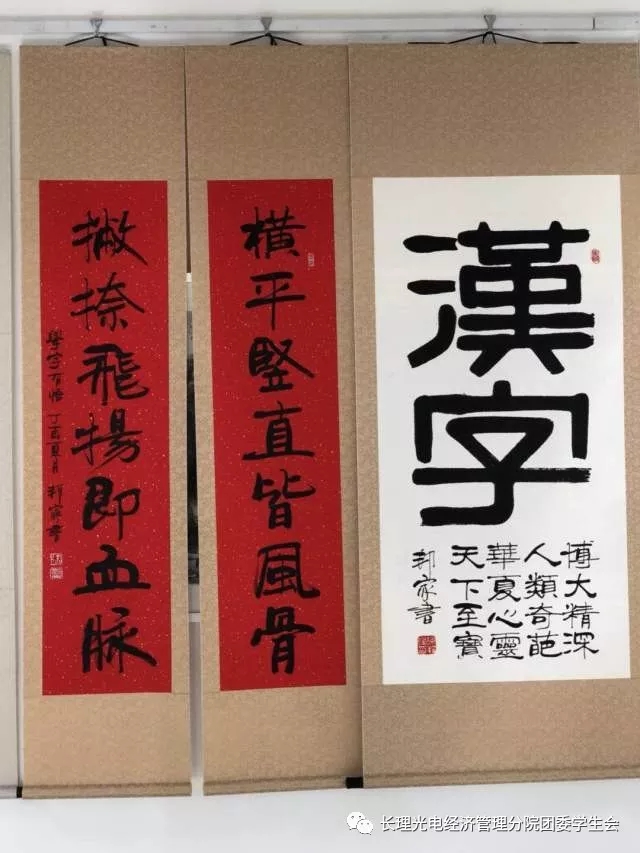 漢字
博大精深
人類奇葩
華夏心靈
天下至寶
邦家書
橫平竪直皆風骨
撇捺飛揚即血脉
學字有悟 丁酉夏月 邦家書
长理光电经济管理分院团委学生会